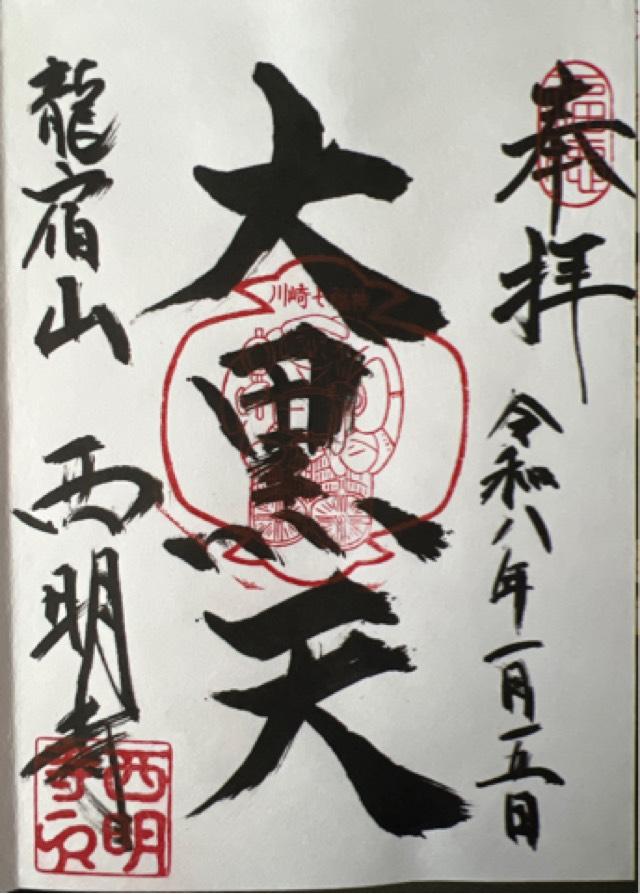 奉拝
令和八年一月五日
大黒天
川崎七福神
龍宿山 西明寺
西明
寺印